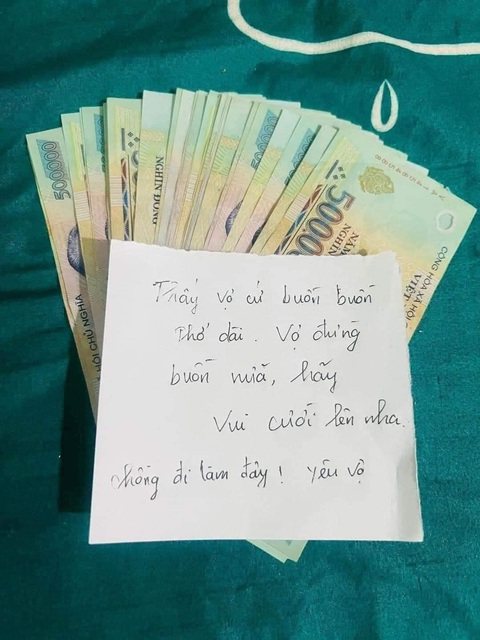 500000
NGHÌN ĐỒNG
500000
500000
50000
NGHÌN
CỘNG HÒA XÃ HỘI
VIỆT
HỘI CHỦ NGHĨA
Thấy vợ cứ buồn buồn
thở dài. Vợ đừng
buồn nữa, hãy
Vui cười lên nha.
chồng đi làm đây! yêu vợ